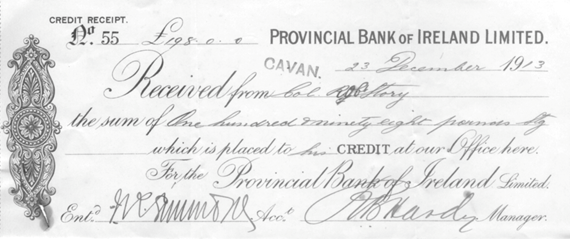 CREDIT RECEIPT.
No 55 £198.0.0 PROVINCIAL BANK OF IRELAND LIMITED.
CAVAN. 23 December 1913
Received from Col Story
the sum of One hundred & ninety eight pounds stg
which is placed to his CREDIT at our Office here.
For the Provincial Bank of Ireland Limited.
Entd. Acct. Hardy Manager.